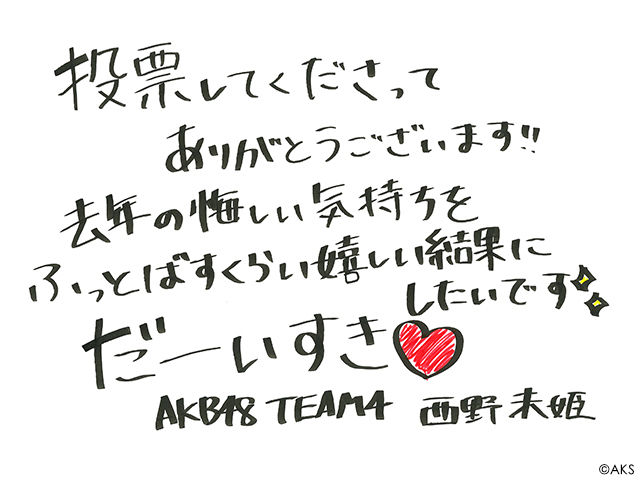 投票してくださって
ありがとうございます!!
去年の悔しい気持ちを
ふっとばすくらい嬉しい結果に
したいです
だーいすき
AKB48 TEAM4 西野未姫
©AKS